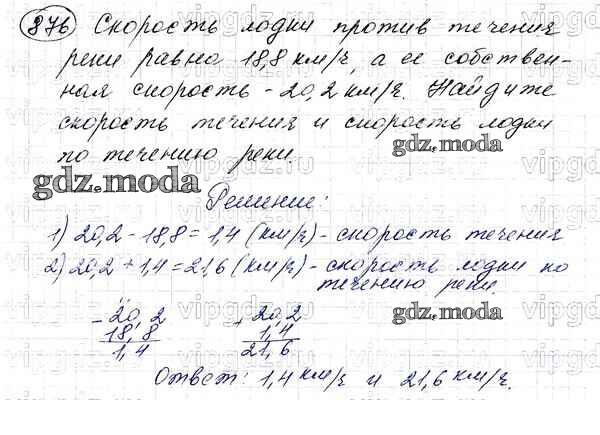 876 Скорость лодки против течения
реки равна 18,8 км/ч, а ее собствен-
ная скорость - 20,2 км/ч. Найдите
скорость течения и скорость лодки
по течению реки.
gdz.moda
gdz.moda
Решение:
1) 20,2 - 18,8 = 1,4 (км/ч) - скорость течения
2) 20,2 + 1,4 = 21,6 (км/ч) - скорость лодки по
течению реки.
- 20,2 + 20,2
18,8 1,4
1,4 21,6
gdz.moda
Ответ: 1,4 км/ч и 21,6 км/ч.